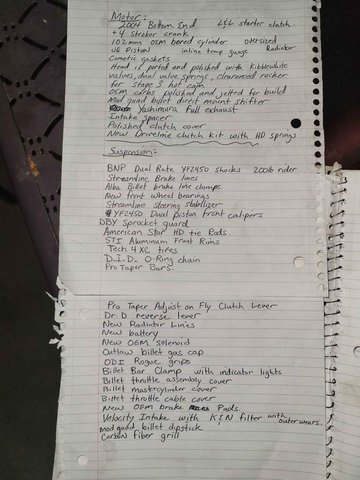 Motor:
2004 Bottom End L&L starter clutch
+4 Stroker crank
102mm oem bored cylinder oversized
UE Piston inline temp guage Radiator
Cometic gaskets
Head is ported and polished with kibblewhite
valves, dual valve springs, clearanced rocker
for stage 3 hot cam
oem carbs polished and jetted for build
Mod quad billet direct mount shifter
Yoshimura full exhaust
Intake spacer
Polished clutch cover
New Driveline clutch kit with HD springs
Suspension:
BNP Dual Rate YFZ450 shocks 200lb rider
Streamline Brake lines
Alba Billet brake line clamps
New front wheel bearings
Streamline Steering stabilizer
YFZ450 Dual piston front calipers
DBY Sprocket guard
American Star HD tie Rods
STI Aluminum Front Rims
Tech 4 XC tires
D.I.D. O-Ring chain
Pro Taper Bars.
Pro Taper Adjust on Fly Clutch Lever
Dr. D reverse lever
New Radiator Lines
New battery
New OEM solenoid
Outlaw billet gas cap
ODI Rogue grips
Billet Bar Clamp with indicator lights
Billet throttle assembly cover
Billet mastercylinder cover
Billet throttle cable cover
New OEM brake Pads.
Velocity Intake with K&N filter with outerwears.
Mod quad billet dipstick
Carbon fiber grill